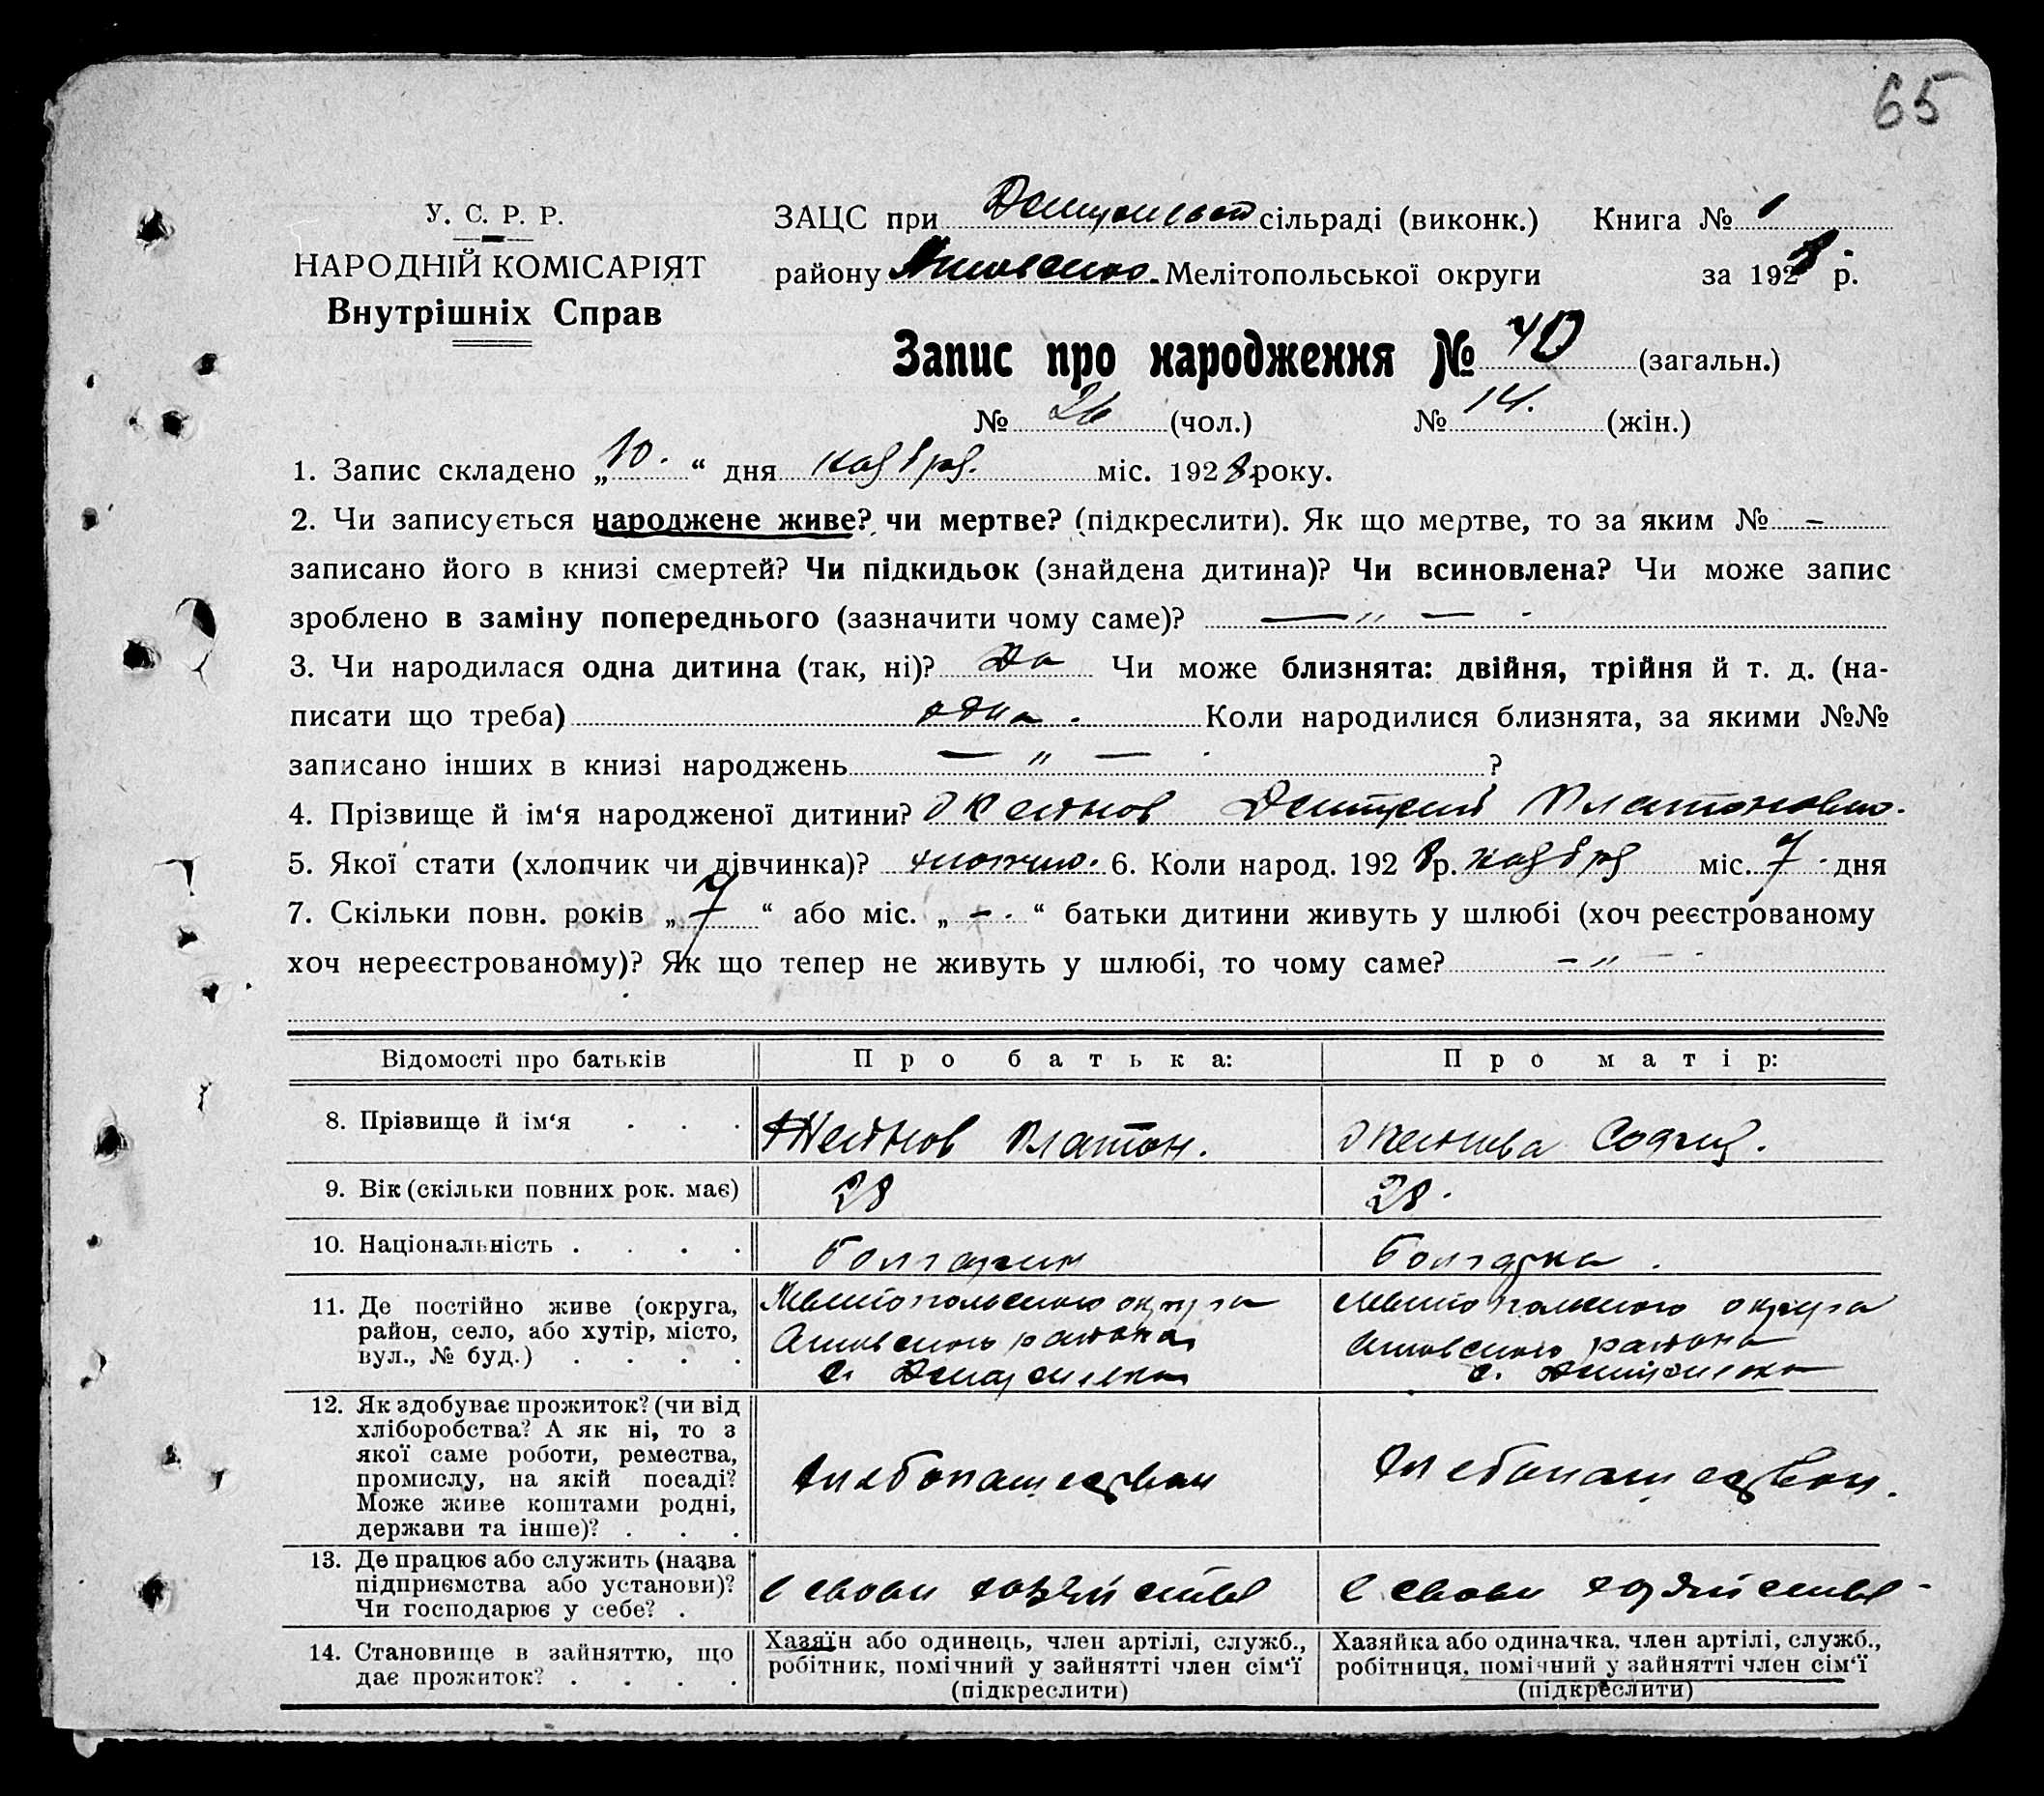 65
У. С. Р. Р.
НАРОДНІЙ КОМІСАРІЯТ
Внутрішніх Справ
ЗАЦС при сільраді (виконк.) Книга № 1
району Мелітопольської округи за 1928 р.
Запис про народження № 40 (загальн.)
№ 26 (чол.) № 14. (жін.)
1. Запис складено „10.“ дня ноября. міс. 1928 року.
2. Чи записується народжене живе? чи мертве? (підкреслити). Як що мертве, то за яким № –
записано його в книзі смертей? Чи підкидьок (знайдена дитина)? Чи всиновлена? Чи може запис
зроблено в заміну попереднього (зазначити чому саме)? — „ —
3. Чи народилася одна дитина (так, ні)? Да Чи може близнята: двійня, трійня й т. д. (на-
писати що треба) одна. Коли народилися близнята, за якими №№
записано інших в книзі народжень — „ — ?
4. Прізвище й ім‘я народженої дитини? Дмитрий Платонович.
5. Якої статі (хлопчик чи дівчинка)? 6. Коли народ. 1928 р. ноября міс. 7 дня
7. Скільки повн. років „7“ або міс. „–“ батьки дитини живуть у шлюбі (хоч реєстрованому
хоч нереєстрованому)? Як що тепер не живуть у шлюбі, то чому саме? – „ –
Відомості про батьків Про батька: Про матір:
8. Прізвище й ім‘я Платон. София.
9. Вік (скільки повних рок. має) 28 28.
10. Національність Болгарин Болгарка.
11. Де постійно живе (округа,
район, село, або хутір, місто,
вул., № буд.)
Мелитопольского округа
района
с.
Мелитопольского округа
района
с.
12. Як здобуває прожиток? (чи від
хліборобства? А як ні, то з
якої саме роботи, ремества,
промислу, на якій посаді?
Може живе коштами родні,
держави та інше)?
Хлебопашеством
Хлебопашеством.
13. Де працює або служить (назва
підприємства або установи)?
Чи господарює у себе?
в своем хозяйстве
в своем хозяйстве
14. Становище в зайняттю, що
дає прожиток?
Хазяїн або одинець, член артілі, служб.,
робітник, помічний у зайнятті член сім‘ї
(підкреслити)
Хазяйка або одиначка, член артілі, служб.,
робітниця, помічний у зайнятті член сім‘ї
(підкреслити)